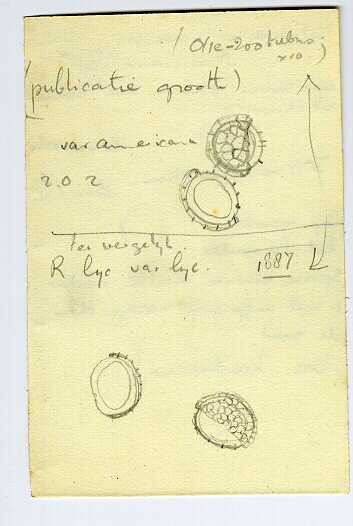 (Olie-200 tubus
x10.)
(publicatie grootte)
var americana
202
ter vergelijk.
R. lyc. var lyc. 1887